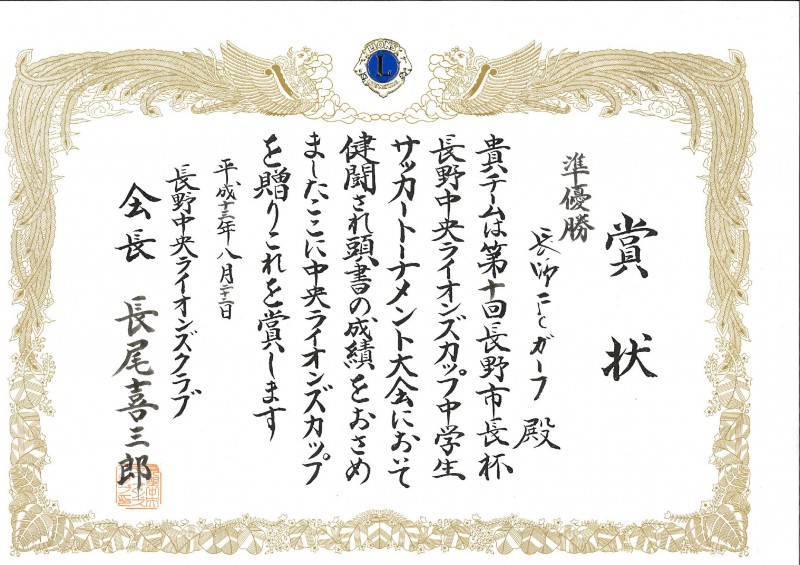 LIONS
L
賞状
準優勝
長野FCガーフ殿
貴チームは第十回長野市長杯
長野中央ライオンズカップ中学生
サッカートーナメント大会において
健闘され頭書の成績をおさめ
ましたここに中央ライオンズカップ
を贈りこれを賞します
平成十三年八月二十二日
長野中央ライオンズクラブ
会長 長尾喜三郎